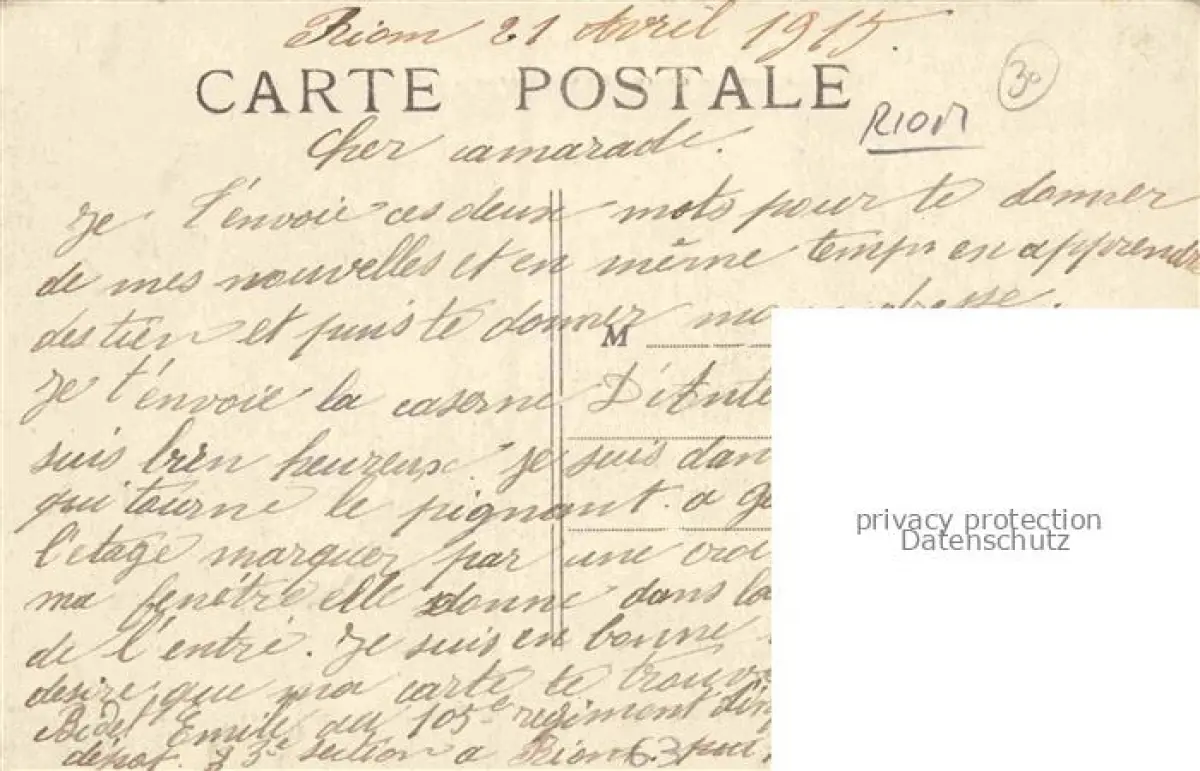 Riom 21 Avril 1915.
CARTE POSTALE
30
RIOM
Cher camarade.
Je t'envoie ces deux mots pour te donner
de mes nouvelles et en même temps en apprendre
des tien et puis te donner
M
Je t'envoie la caserne D'Ante
suis bien heureux. Je suis dan
qui tourne le pignant. a
l'etage marquer par une croi
ma fenêtre elle donne dans la
de l'entré. Je suis en bonne
desire que ma carte te trouv
Bidet Emile au 105e regiment
dépot. 3e section a Riom 63
privacy protection
Datenschutz